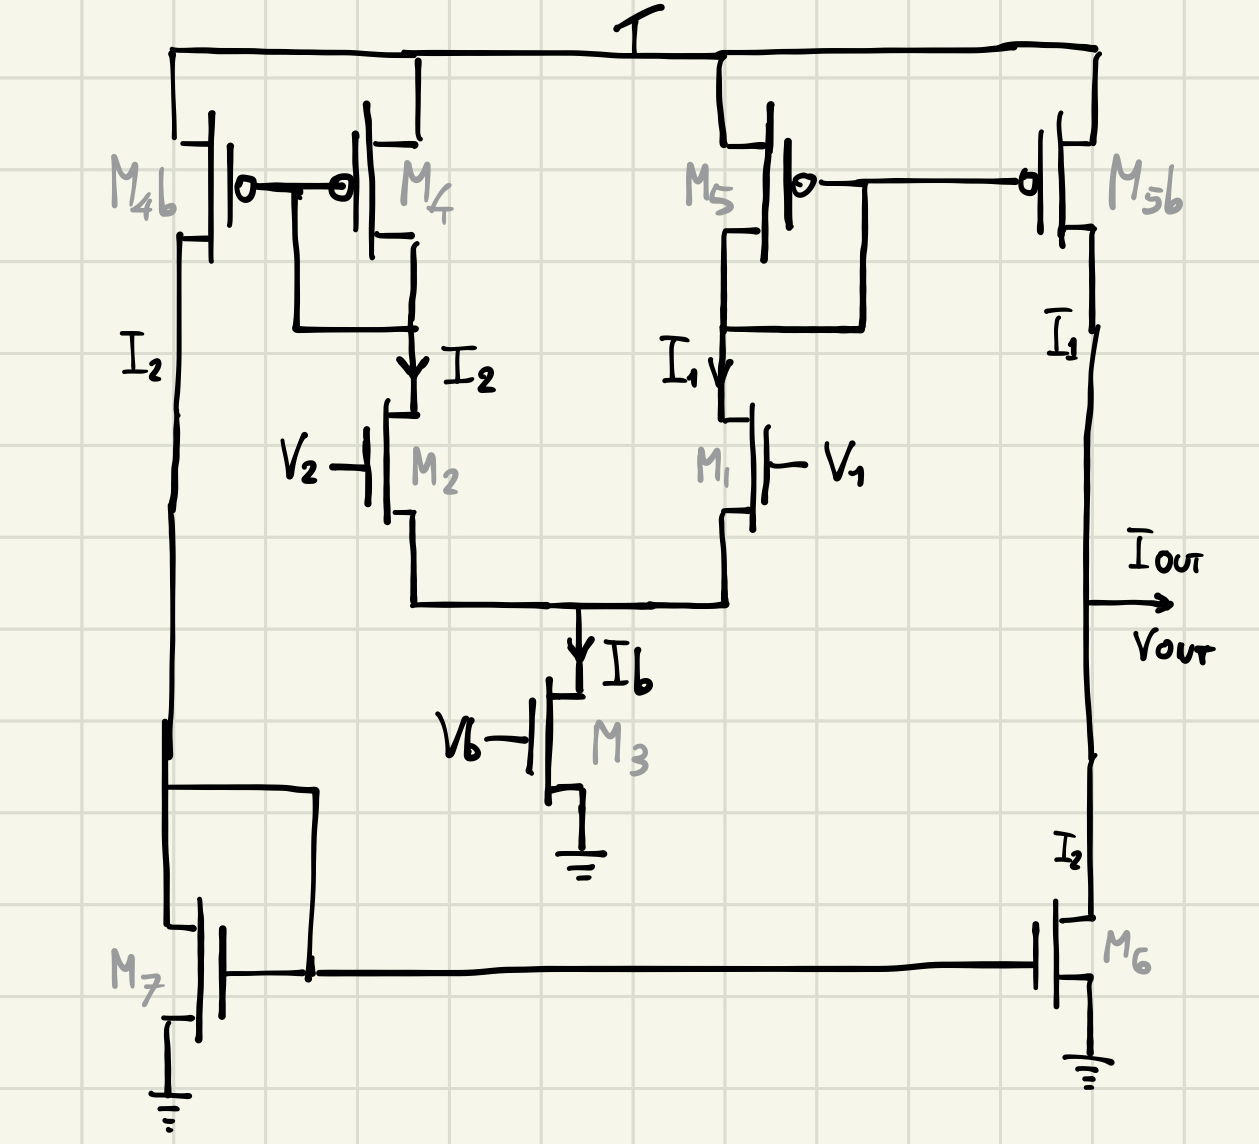 M4b
M4
M5
M5b
I2
I2
I1
I1
V2
M2
M1
V1
IOUT
VOUT
Ib
Vb
M3
I2
M7
M6